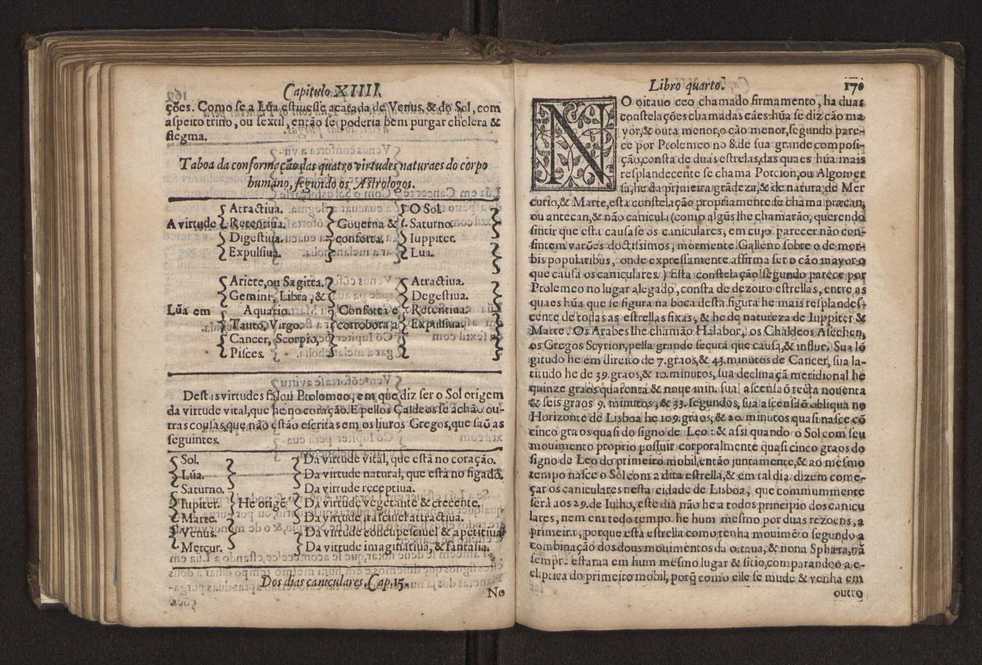 Capitulo XIIII.
ções. Como se a Lũa estiuesse acatada de Venus, & do Sol, com
aspeito trino, ou sextil, então se poderia bem purgar cholera &
flegma.
Taboa da conformação das quatro virtudes naturaes do corpo
humano, segundo os Astrologos.
A virtude
Atractiua.
Retentiua.
Digestiua.
Expulsiua.
Gouerna &
conforta.
O Sol.
Saturno.
Iuppiter.
Lua.
Lũa em
Ariete, ou Sagitta.
Gemini, Libra, &
Aquario.
Tauro, Virgo.
Cancer, Scorpio,
Pisces.
Conforta e
corrobora a
Atractiua.
Degestiua.
Retentiua.
Expulsiua.
Destas virtudes falou Ptolomeo, em que diz ser o Sol origem
da virtude vital, que he no coração. E pellos Caldeos se achão ou-
tras cousas, que não estão escritas em os liuros Gregos, que saũ as
seguintes.
Sol.
Lũa.
Saturno.
Iupiter.
Marte.
Venus.
Mercur.
He orige
Da virtude vital, que està no coração.
Da virtude natural, que està no figado.
Da virtude receptiua.
Da virtude vegetante & crecente.
Da virtude irascìuel attractiua.
Da virtude concupisciuel & apetitiua
Da virtude imaginatiua, & fantasia.
Dos dias caniculares. Cap. 15.
No
Libro quarto.
170
NO oitauo ceo chamado firmamento, ha duas
constelações chamadas cães: hũa se diz cão ma
yor, & outa menor, o cão menor, segundo pare-
ce por Ptolemeo no 8. de sua grande composi-
ção, consta de duas estrelas, das quaes hũa mais
resplandecente se chama Porcion, ou Algomer
sa, he da primeira grãdeza, & de natura de Mer
curio, & Marte, esta constelação propriamente se chama præcan,
ou antecan, & não canicula (como algũs lhe chamarão, querendo
sintir que esta causasse os caniculares, em cujo parecer não con-
sintem varões doctissimos, mormente Galleno sobre o de mor-
bis popularibus, onde expressamente affirma ser o cão mayor o
que causa os caniculares.) Esta constelação segundo parece por
Ptolemeo no lugar alegado, consta de dezouto estrellas, entre as
quaes hũa que se figura na boca desta figura he mais resplandes-
cente de todas as estrellas fixas, & he de natureza de Iuppiter &
Marte. Os Arabes lhe chamão Halabor, os Chaldeos Asechen,
os Gregos Seyrion, pella grande secura que causa, & influe. Sua lõ
gitudo he em direito de 7. graos, & 43. minutos de Cancer, sua la-
titudo he de 39. graos, & 10. minutos, sua declinaçã meridional he
quinze graos quarenta & noue min. sua ascensaõ recta nouenta
& seis graos 9. minutos, & 33. segundos, sua ascensaõ obliqua no
Horizonte de Lisboa he 109. graos, & 10. minutos quasi nasce cõ
cinco graos quasi do signo de Leo: & assi quando o Sol com seu
mouimento proprio possuir corporalmente quasi cinco graos do
signo de Leo do primeiro mobil, então juntamente, & ao mesmo
tempo nasce o Sol com a dita estrella, & em tal dia dizem come-
çar os caniculares nesta cidade de Lisboa, que commummente
serà aos 29. de Iulho, este dia não he a todos principio dos canicu
lares, nem em todo tempo he hum mesmo por duas rezoens, a
primeira, porque esta estrella como tenha mouimẽto segundo a
combinação dos dous mouimentos da octaua, & nona Sphæra, nã
sempre estaria em hum mesmo lugar & sitio, comparando a a e-
cliptica do primeiro mobil, porq̃ como elle se mude & venha em
outro